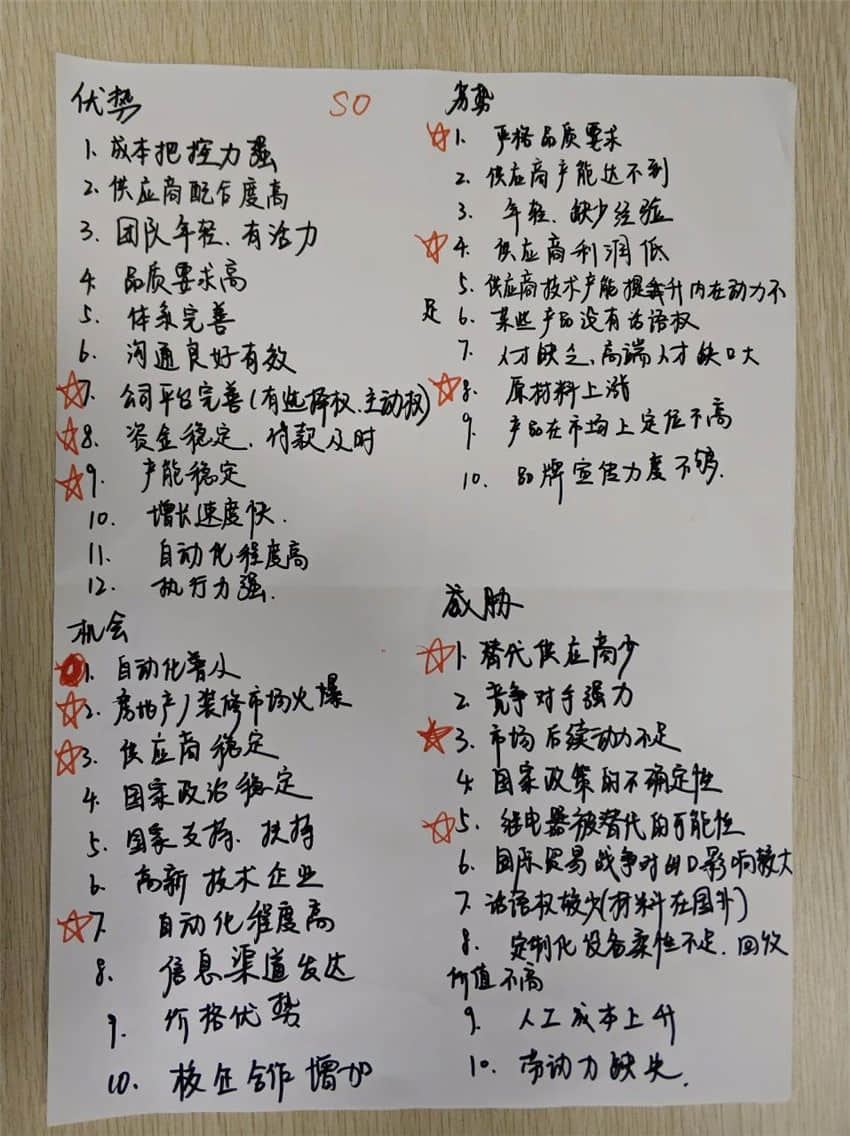 优势
SO
1. 成本把控力强
2. 供应商配合度高
3. 团队年轻、有活力
4. 品质要求高
5. 体系完善
6. 沟通良好有效
7. 公司平台完善(有选择权、主动权)
8. 资金稳定、付款及时
9. 产能稳定
10. 增长速度快.
11. 自动化程度高
12. 执行力强.
劣势
1. 严格品质要求
2. 供应商产能达不到
3. 年轻、缺少经验
4. 供应商利润低
5. 供应商技术产能提升内在动力不
足
6. 某些产品没有话语权
7. 人才缺乏、高端人才缺口大
8. 原材料上涨
9. 产品在市场上定位不高
10. 品牌宣传力度不够.
机会
1. 自动化普及
2. 房地产/装修市场火爆
3. 供应商稳定
4. 国家政治稳定
5. 国家支持、扶持
6. 高新技术企业
7. 自动化程度高
8. 信息渠道发达
9. 价格优势
10. 校企合作增加
威胁
1. 替代供应商少
2. 竞争对手强力
3. 市场后续动力不足
4. 国家政策的不确定性
5. 继电器被替代的可能性
6. 国际贸易战争对出口影响较大
7. 话语权较少(材料在国外)
8. 定制化设备柔性不足、回收
价值不高
9. 人工成本上升
10. 劳动力缺失.